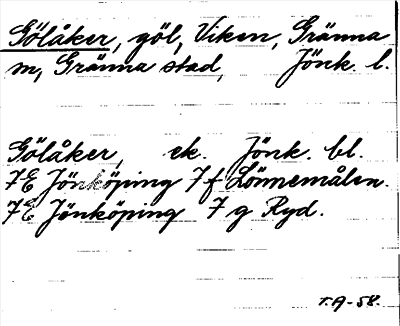 Gölåker, göl, Viken, Gränna
m, Gränna stad, Jönk. l.
Gölåker, ek. Jönk. bl.
7E Jönköping 7 f Lönnemålen.
7E Jönköping 7 g Ryd.
T.A-58.